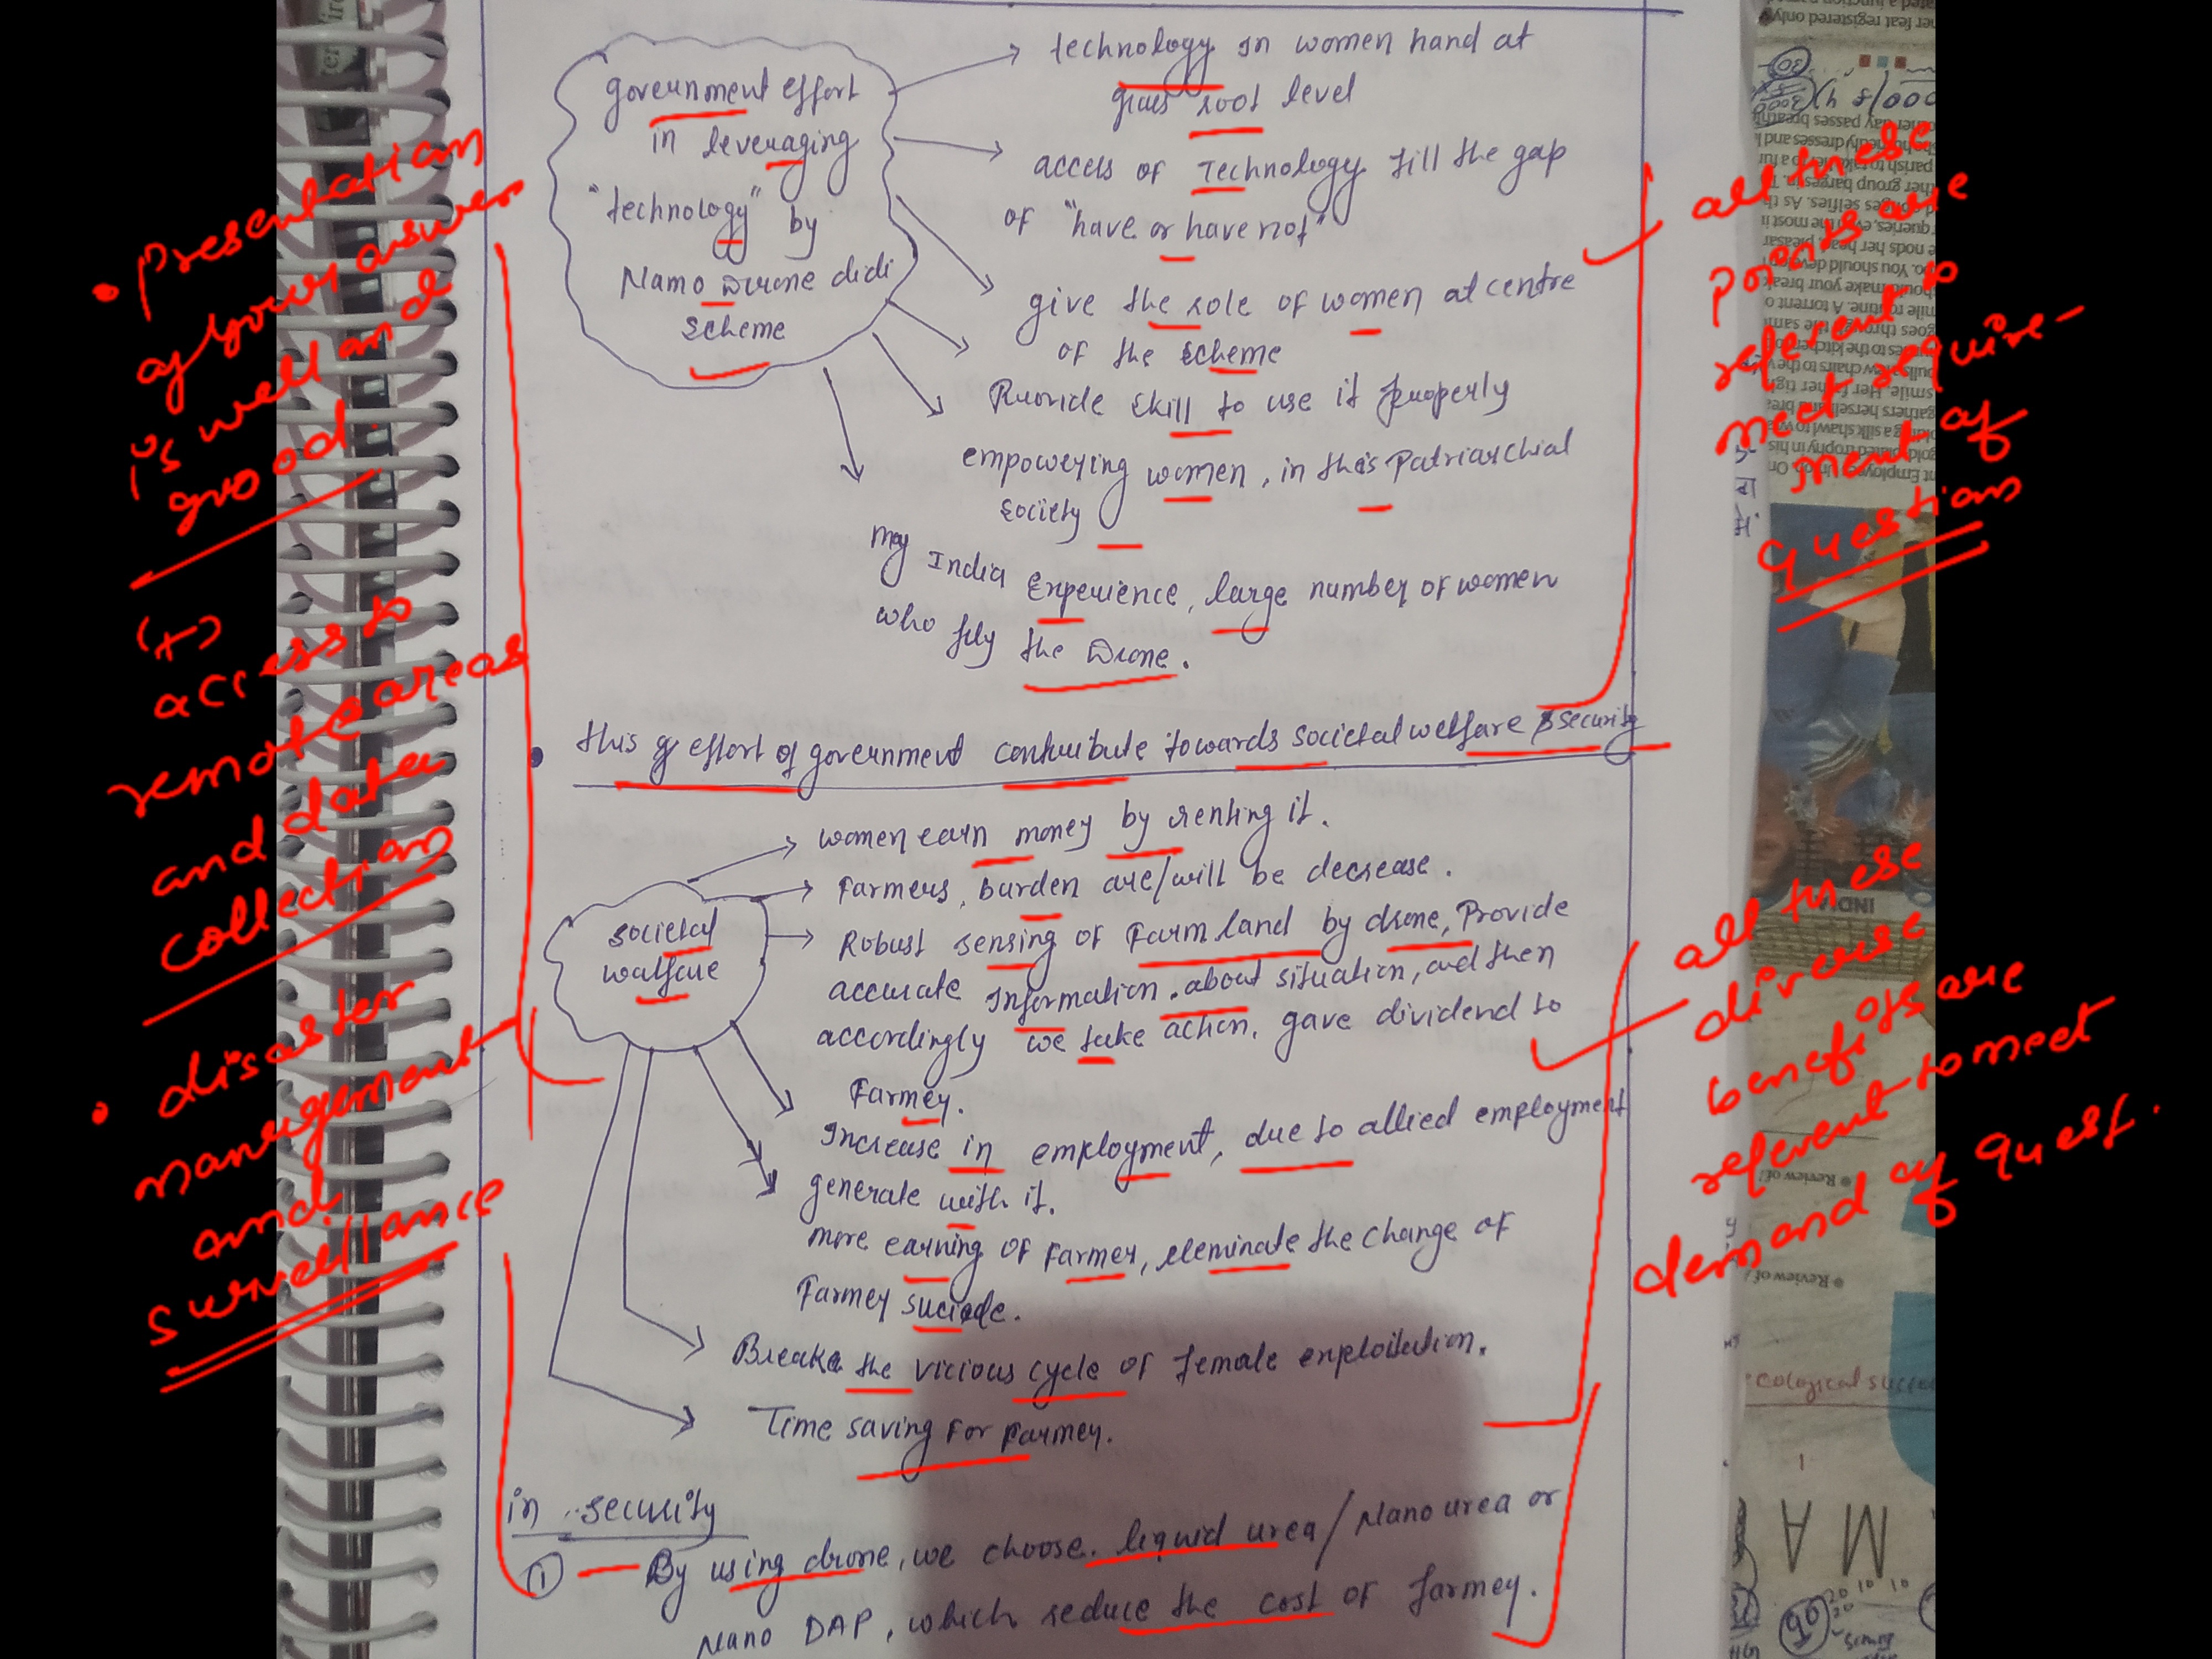 technology in women hand at
grass root level
government effort
in leveraging
"technology" by
Namo Drone didi
scheme
access of Technology fill the gap
of "have or have not"
give the role of women at centre
of the scheme
Provide skill to use it properly
empowering women, in this Patriarchial
society
my India Experience, large number of women
who fly the Drone.
this effort of government contribute towards societal welfare & security
women earn money by renting it.
Farmers, burden are/will be decrease.
societal
walfare
Robust sensing of Farm land by drone, Provide
accurate Information about situation, and then
accordingly we take action, gave dividend to
Farmer.
Increase in employment, due to allied employment
generate with it.
more earning of Farmer, eleminate the change of
Farmer suciede.
Breaks the vicious cycle of female exploitation.
Time saving for Farmer.
in security
① — By using drone, we choose liquid urea / Nano urea or
Nano DAP, which reduce the cost of farmer.
• Presentation
of your answer
is well and
good.
(+)
access to
remote areas
and data
collection
• disaster
management
and
survellance
all these
points are
referent to
meet require-
ment of
question
all these
diverse
benefits are
referent to meet
demand of quest.